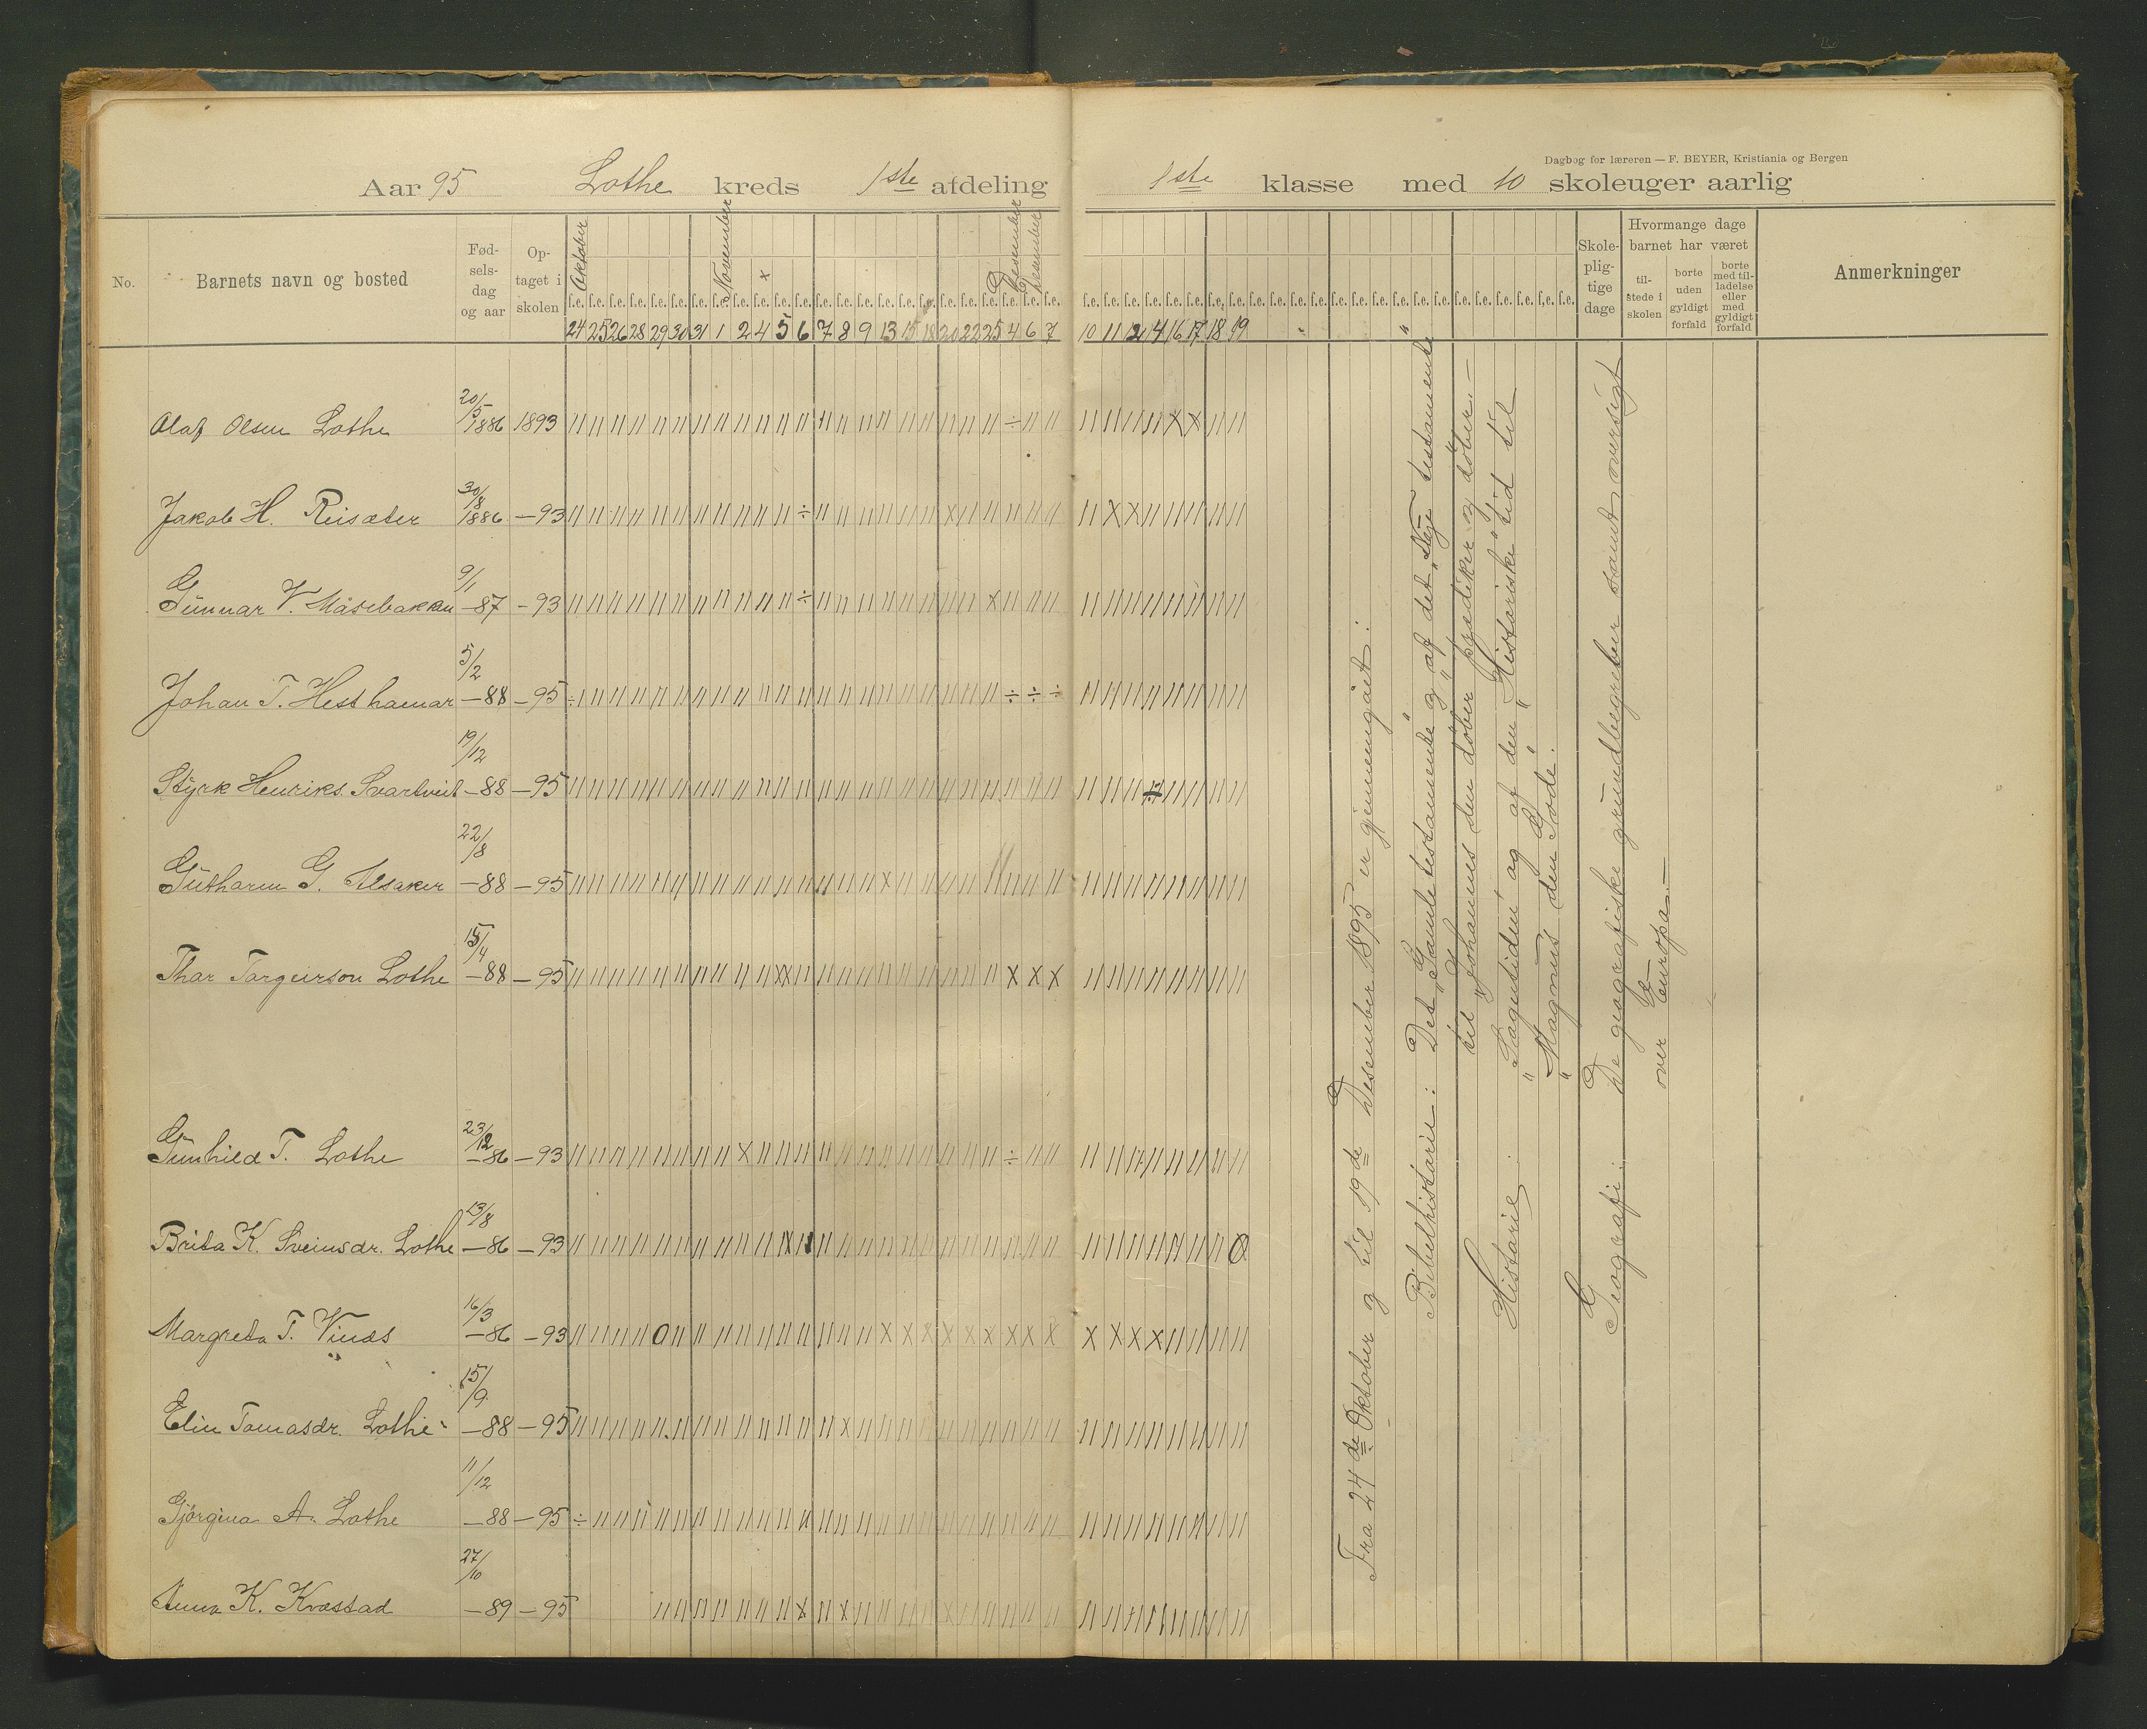 Dagbog for læreren — F. BEYER, Kristiania og Bergen
Aar 95 Lothe kreds 1ste afdeling 1ste klasse med 10 skoleuger aarlig
No. Barnets navn og bosted Fødselsdag og aar Optaget i skolen Oktober November Desember Desember
Skolepligtige dage Hvormange dage barnet har været tilstede i skolen borte uden gyldigt forfald borte med tilladelse eller med gyldigt forfald Anmerkninger
f.e. f.e. f.e. f.e. f.e. f.e. f.e. f.e. f.e. f.e. f.e. f.e. f.e. f.e. f.e. f.e. f.e. f.e. f.e. f.e. f.e. f.e. f.e. f.e.
24 25 26 28 29 30 31 1 2 4 5 6 7 8 9 13 15 18 20 22 25 4 6 7 10 11 12 14 16 17 18 19
Olaf Olsen Lothe 20/5 1886 1893
Jakob H. Reisæter 30/8 1886 —93
Gunnar V. Måsebakken 9/1 —87 —93
Johan T. Hesthamar 5/2 —88 —95
Styrk Henriks. Svartveit 19/12 —88 —95
Gutharm G. Alsaker 22/8 —88 —95
Thor Torgeirson Lothe 15/4 —88 —95
Gunhild T. Lothe 23/12 —86 —93
Brita K. Sveinsdr. Lothe 13/8 —86 —93
Margreta T. Vinæs 16/3 —86 —93
Elin Tomasdr. Lothe 15/9 —88 —95
Gjørgina A. Lothe 11/12 —88 —95
Anna K. Kvæstad 27/10 —89 —95
Fra 24de Oktober og til 19de Desember 1895 er gjennemgået:
Bibelhistorie: Det „Gamle testamente" og „af det „Nye testamente"
til „Johannes den døber prædiker og døber.—
Historie: „Sagntiden" og af den „Historiske" tid til
„Magnus den Gode".
Geografi: De geografiske grundbegreber samt oversigt
over Europa.—